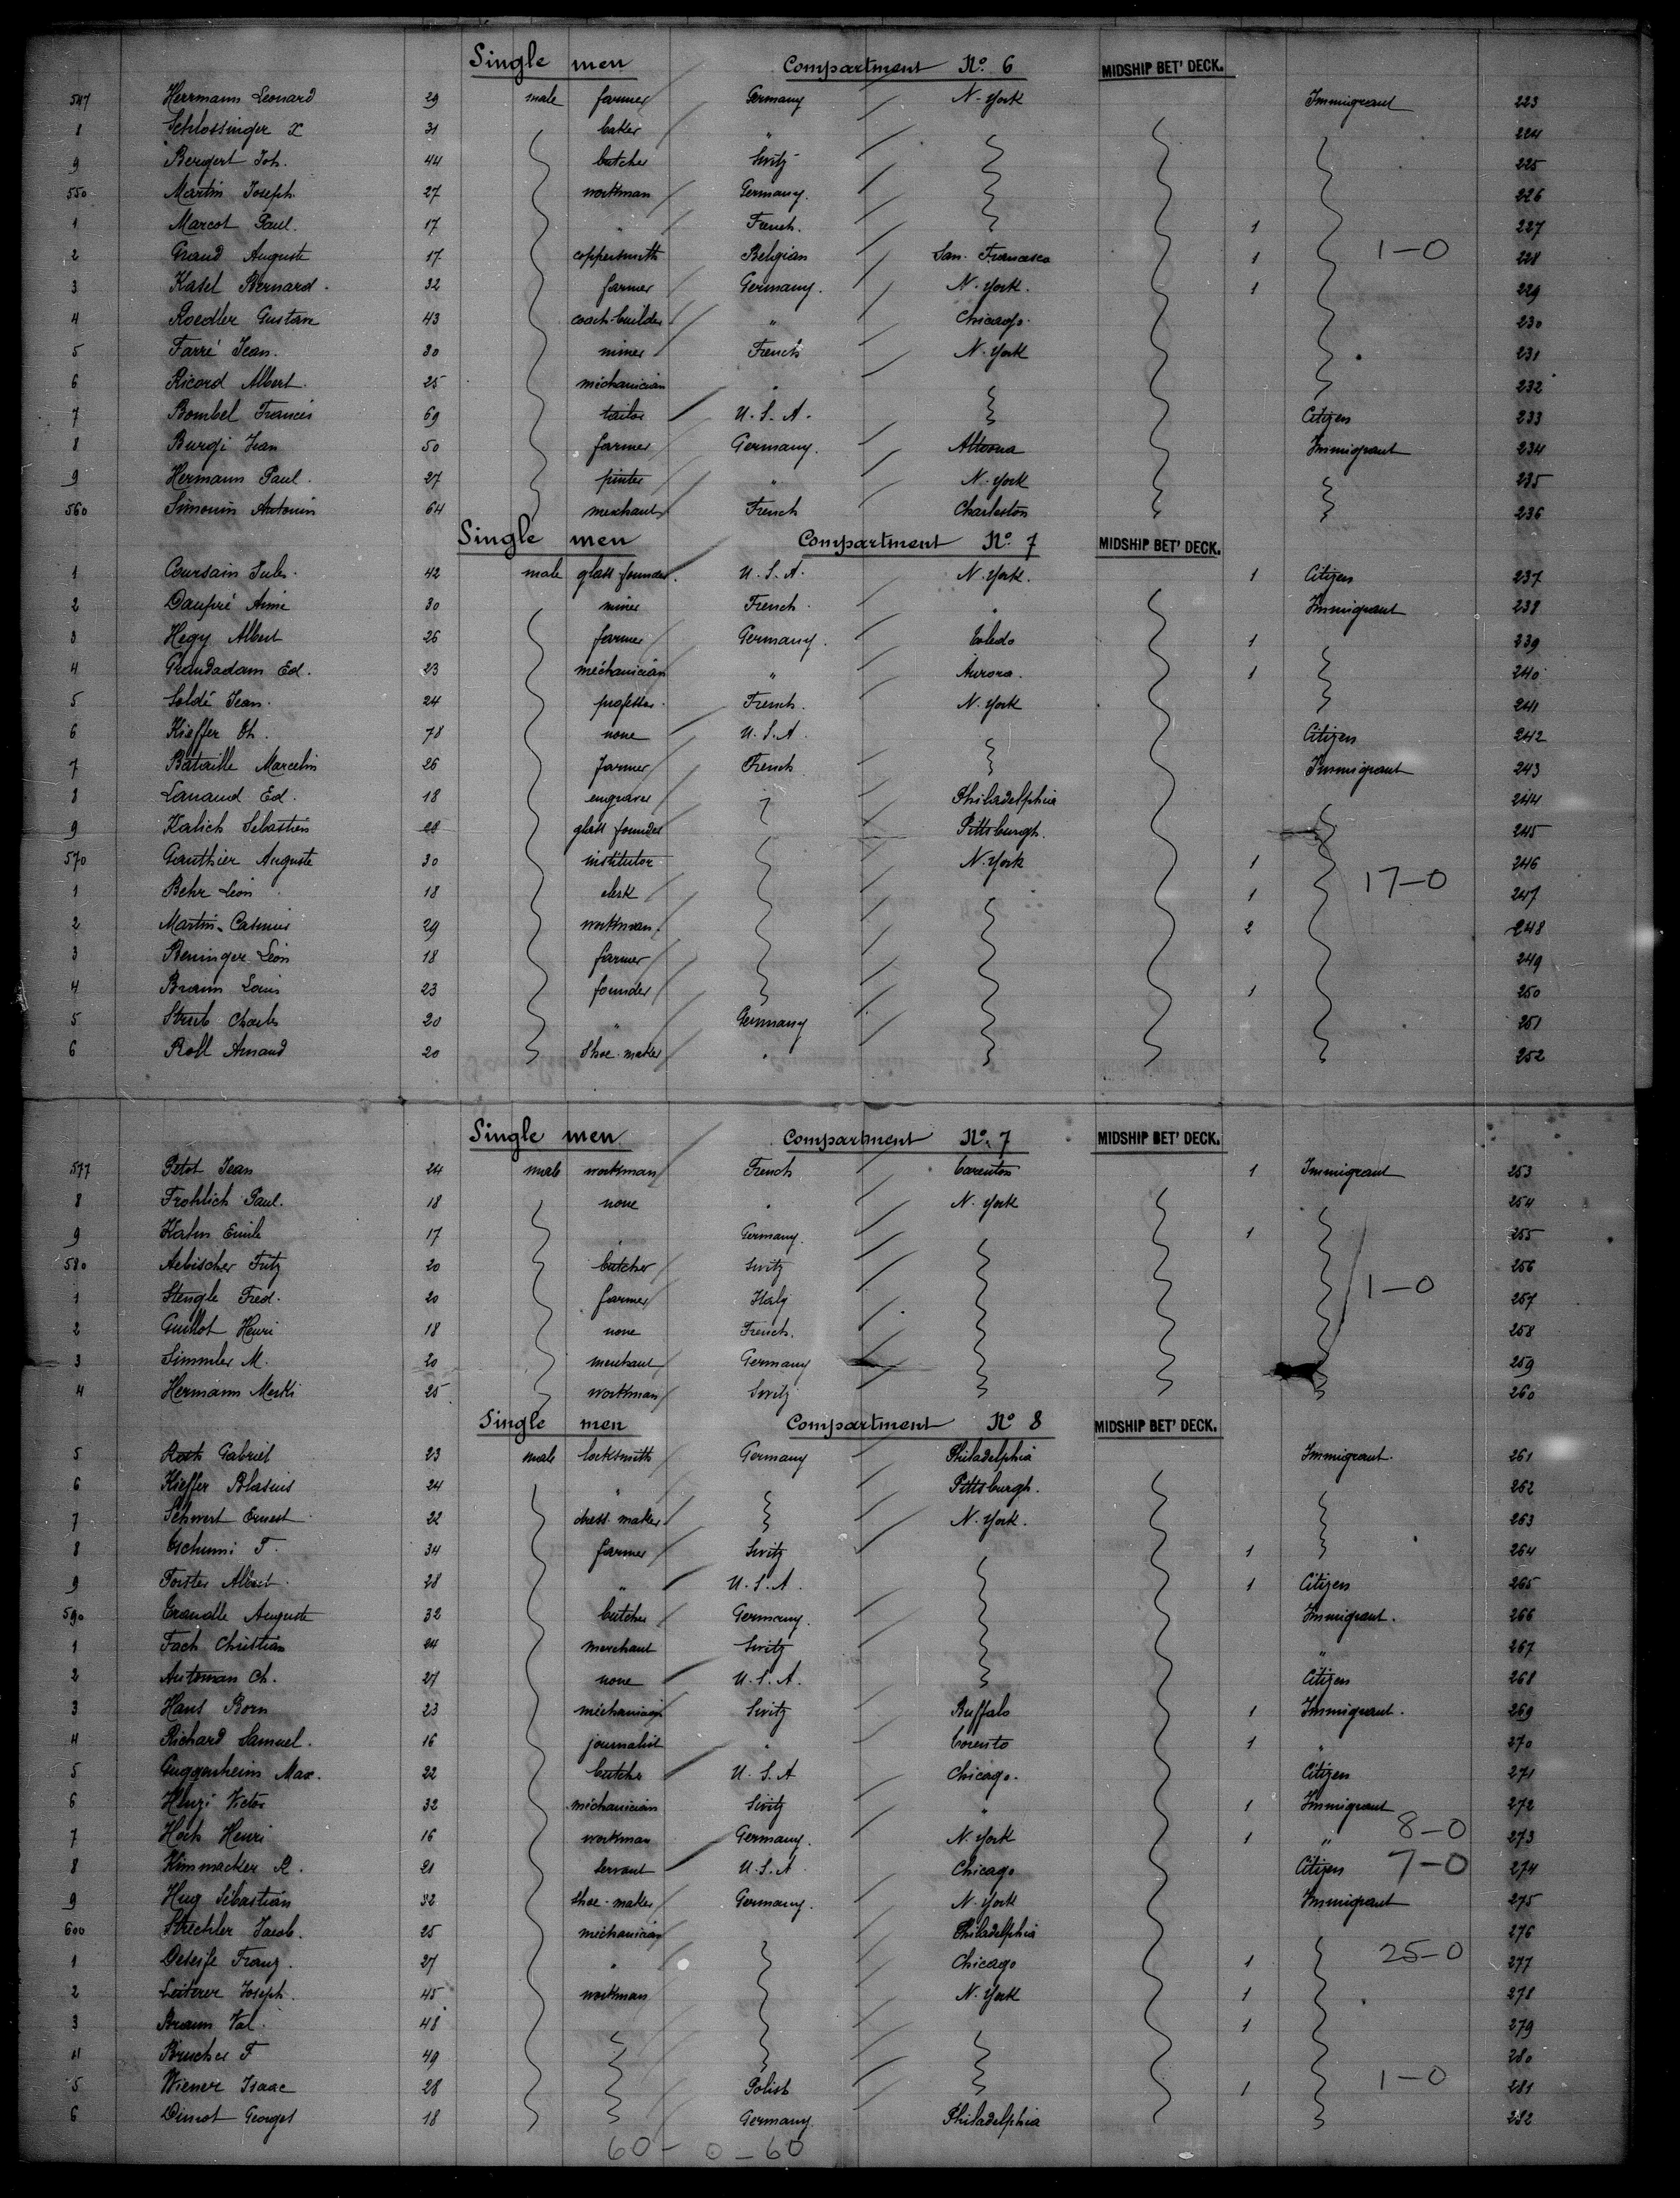 Single men Compartment No. 6 MIDSHIP BET' DECK.
547 Herrmann Leonard 29 male farmer Germany N-York Immigrant 223
8 Schlossinger X 31 baker " 224
9 Bergert Joh. 44 butcher Switz 225
550 Martin Joseph 27 workman Germany. 226
1 Marcot Paul. 17 " French. 1 227
2 Grand Auguste 17 coppersmith Belgian San. Francisco 1 1-0 228
3 Katel Bernard. 32 farmer Germany. N-York. 1 229
4 Roedler Gustave 43 coach-builder " Chicago. 230
5 Farré Jean. 30 miner French N-York 231
6 Ricord Albert. 25 méchanician " 232
7 Bombel Francis 69 tailor U.S.A. Citizen 233
8 Burgi Jean 50 farmer Germany. Altoona Immigrant 234
9 Hermann Paul. 27 " N-York 235
560 Simonin Antonin 64 merchant French Charleston 236
Single men Compartment No. 7 MIDSHIP BET' DECK.
1 Coursain Jules. 42 male glass founder. U.S.A. N-York. 1 Citizen 237
2 Daupré Aimé 30 miner French. " Immigrant 238
3 Hegy Albert 26 farmer Germany. Toledo 1 239
4 Grandadam Ed. 23 méchanician " Aurora. 1 240
5 Soldé Jean. 24 professor. French. N-York 241
6 Kieffer Th. 78 none U.S.A. Citizen 242
7 Bataille Marcelin 26 farmer French Immigrant 243
8 Lanaud Ed. 18 engraver Philadelphia 244
9 Kalich Sebastien 28 glass founder Pittsburgh. 245
570 Gauthier Auguste 30 institutor N-York 1 246
1 Behr Léon 18 clerk 1 17-0 247
2 Martin-Casimir 29 workman. 2 248
3 Beninger Léon 18 farmer 249
4 Braun Louis 23 founder 1 250
5 Streb Charles 20 " Germany 251
6 Roll Arnaud 20 Shoe-maker " 252
Single men Compartment No. 7 MIDSHIP BET' DECK.
577 Petot Jean 24 male workman French 1 Immigrant 253
8 Frohlich Paul. 18 none " N-York 254
9 Kahn Emile 17 " Germany. 1 255
580 Aebischer Fritz 20 butcher Switz 256
1 Stengle Fred. 20 farmer Italy 1-0 257
2 Guillot Henri 18 none French. 258
3 Simmler M. 20 merchant Germany 259
4 Hermann Merki 25 workman Switz 260
Single men Compartment No 8 MIDSHIP BET' DECK.
5 Roth Gabriel 23 male locksmith Germany Philadelphia Immigrant. 261
6 Kieffer Blasius 24 " Pittsburgh. 262
7 Schwert Ernest 22 dress-maker N-York. 263
8 Tschumi F. 34 farmer Switz 1 264
9 Forster Albert. 28 " U.S.A. 1 Citizen 265
590 Grandle Auguste 32 butcher Germany. Immigrant. 266
1 Fach Christian 24 merchant Switz " 267
2 Automan Ch. 27 none U.S.A. Citizen 268
3 Hans Born 23 méchanician Switz Buffalo 1 Immigrant. 269
4 Richard Samuel. 16 journalist " Toronto 1 " 270
5 Guggenheim Max. 22 butcher U.S.A Chicago. Citizen 271
6 Henzi Victor 32 méchanician Switz " 1 Immigrant 272
7 Hoch Henri 16 workman Germany. N-York 1 " 8-0 273
8 Kimmacker R. 21 servant U.S.A Chicago Citizen 7-0 274
9 Hug Sébastian 32 shoe-maker Germany. N-York Immigrant 275
600 Strechler Jacob. 25 méchanician Philadelphia 276
1 Franz. 27 " Chicago 1 25-0 277
2 Leiterer Joseph. 45 workman N-York 1 278
3 Braun Val. 48 1 279
4 Brucher F 49 280
5 Wiener Isaac 28 Polish 1 1-0 281
6 Dimot Georges 18 Germany. Philadelphia 282
60-0-60